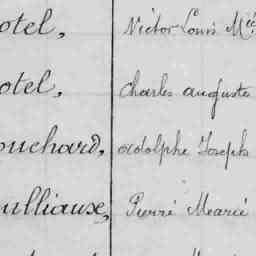 otel, Victor Louis Mcé
otel, Charles auguste
ouchard, adolphe Joseph
ulliaux, Pierré Mearié